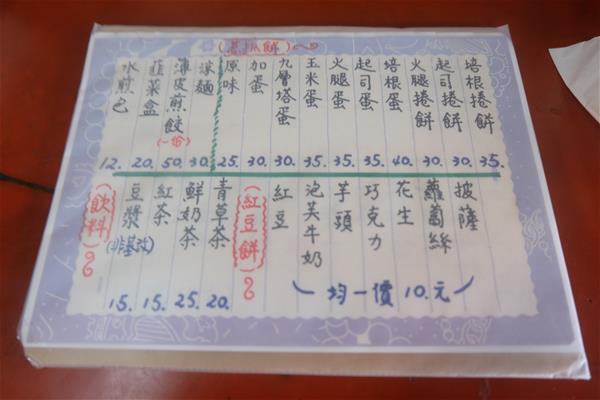 (葱抓餅)
水煎包 12.
韮菜盒 20.
薄皮煎餃(一份) 50.
涼麵 30.
原味 25.
加蛋 30.
九層塔蛋 30.
玉米蛋 35.
火腿蛋 35.
起司蛋 35.
培根蛋 40.
火腿捲餅 30.
起司捲餅 30.
培根捲餅 35.
(飲料)
豆漿(非基改) 15.
紅茶 15.
鮮奶茶 25.
青草茶 20.
(紅豆餅)
紅豆
泡芙牛奶
芋頭
巧克力
花生
蘿蔔絲
披薩
均一價 10.元